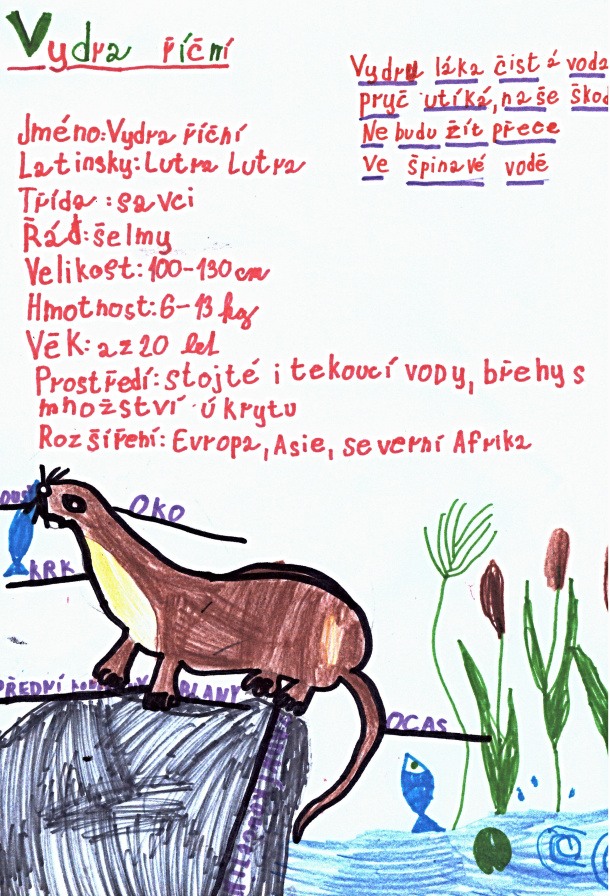 Vydra říční
Vydru láka čistá voda
pryč utíká, naše škod
Ne budu žít přece
Ve špinavé vodě
Jméno: Vydra říční
Latinsky: Lutra Lutra
Třída: savci
Řád: šelmy
Velikost: 100-130 cm
Hmotnost: 6-13 kg
Věk: az 20 let
Prostředí: stojté i tekoucí vody, břehy s
množství úkrytu
Rozšíření: Evropa, Asie, severní Afrika
OKO
KRK
PŘEDNÍ
BLANY
OCAS